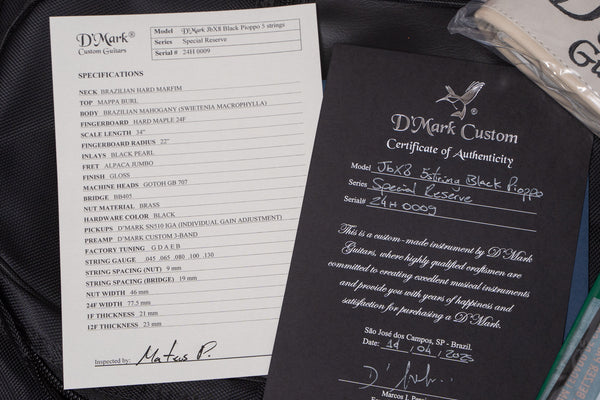 D'Mark®
Custom Guitars
Model D'Mark JbX8 Black Pioppo 5 strings
Series Special Reserve
Serial # 24H 0009
SPECIFICATIONS
NECK BRAZILIAN HARD MARFIM
TOP MAPPA BURL
BODY BRAZILIAN MAHOGANY (SWIETENIA MACROPHYLLA)
FINGERBOARD HARD MAPLE 24F
SCALE LENGTH 34"
FINGERBOARD RADIUS 22"
INLAYS BLACK PEARL
FRET ALPACA JUMBO
FINISH GLOSS
MACHINE HEADS GOTOH GB 707
BRIDGE BB405
NUT MATERIAL BRASS
HARDWARE COLOR BLACK
PICKUPS D'MARK SN510 IGA (INDIVIDUAL GAIN ADJUSTMENT)
PREAMP D'MARK CUSTOM 3-BAND
FACTORY TUNING G D A E B
STRING GAUGE .045 .065 .080 .100 .130
STRING SPACING (NUT) 9 mm
STRING SPACING (BRIDGE) 19 mm
NUT WIDTH 46 mm
24F WIDTH 77.5 mm
1F THICKNESS 21 mm
12F THICKNESS 23 mm
Inspected by: Matcus P.
®
D'Mark Custom
Certificate of Authenticity
Model JbX8 5string Black Pioppo
Series Special Reserve
Serial# 24H 0009
This is a custom-made instrument by D'Mark
Guitars, where highly qualified craftsmen are
committed to creating excellent musical instruments
and provide you with years of happiness and
satisfaction for purchasing a D'Mark.
São José dos Campos, SP - Brazil.
Date: 19 / 04 / 2025
Marcos I.